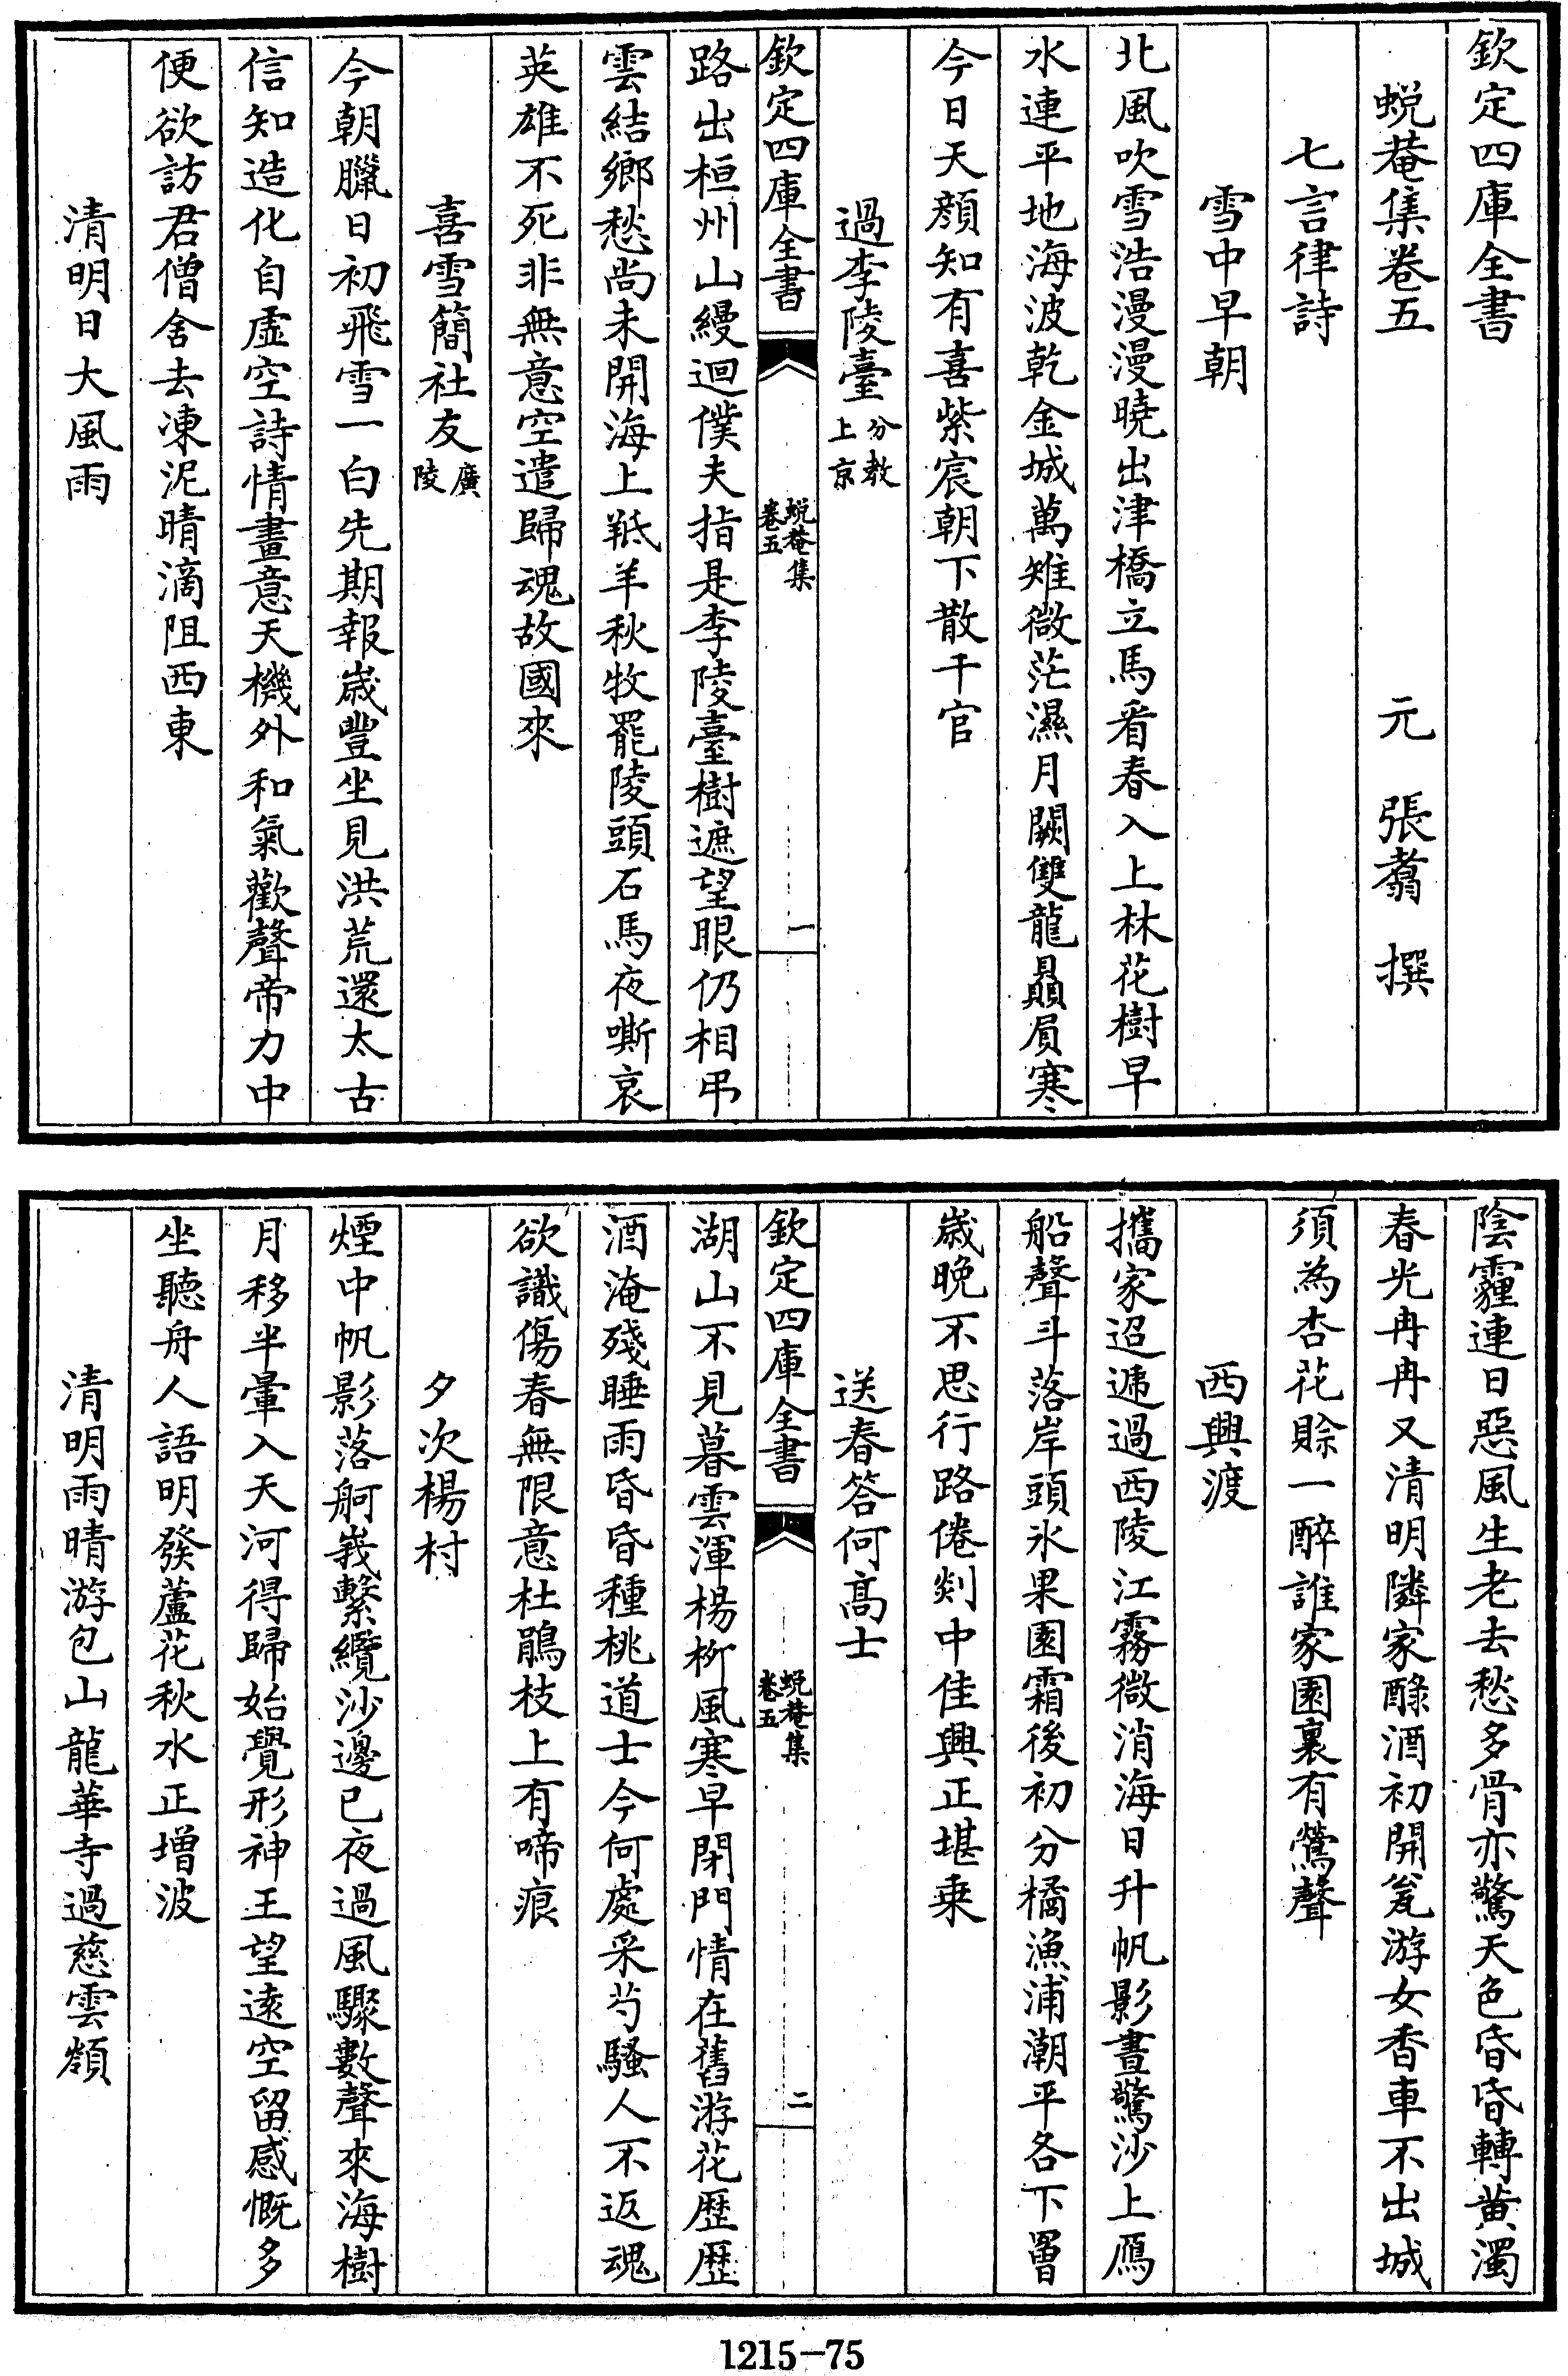 欽定四庫全書
蛻菴集卷五
元 張翥 撰
七言律詩
雪中早朝
北風吹雪浩漫漫曉出津橋立馬看春入上林花樹早
水連平地海波乾金城萬雉微茫濕月闕雙龍贔屓寒
今日天顔知有喜紫宸朝下散千官
過李陵臺分教上京
欽定四庫全書
蛻菴集
卷五
一
路出桓州山縵迴僕夫指是李陵臺樹遮望眼仍相弔
雲結鄉愁尚未開海上羝羊秋牧罷陵頭石馬夜嘶哀
英雄不死非無意空遣歸魂故國來
喜雪簡社友廣陵
今朝臘日初飛雪一白先期報歲豐坐見洪荒還太古
信知造化自虛空詩情畫意天機外和氣歡聲帝力中
便欲訪君僧舍去凍泥晴滴阻西東
清明日大風雨
陰霾連日惡風生老去愁多骨亦驚天色昏昏轉黃濁
春光冉冉又清明隣家醁酒初開瓮游女香車不出城
須為杏花賒一醉誰家園裏有鶯聲
西興渡
攜家迢遞過西陵江霧微消海日升帆影晝驚沙上鴈
船聲斗落岸頭氷果園霜後初分橘漁浦潮平各下罾
歲晚不思行路倦剡中佳興正堪乗
送春答何髙士
欽定四庫全書
蛻菴集
卷五
二
湖山不見暮雲渾楊柳風寒早閉門情在舊游花歷歷
酒淹殘睡雨昏昏種桃道士今何處采芍騷人不返魂
欲識傷春無限意杜鵑枝上有啼痕
夕次楊村
煙中帆影落舸峩繫纜沙邊已夜過風驟數聲來海樹
月移半暈入天河得歸始覺形神王望逺空留感慨多
坐聽舟人語明發蘆花秋水正增波
清明雨晴游包山龍華寺過慈雲嶺
1215-75